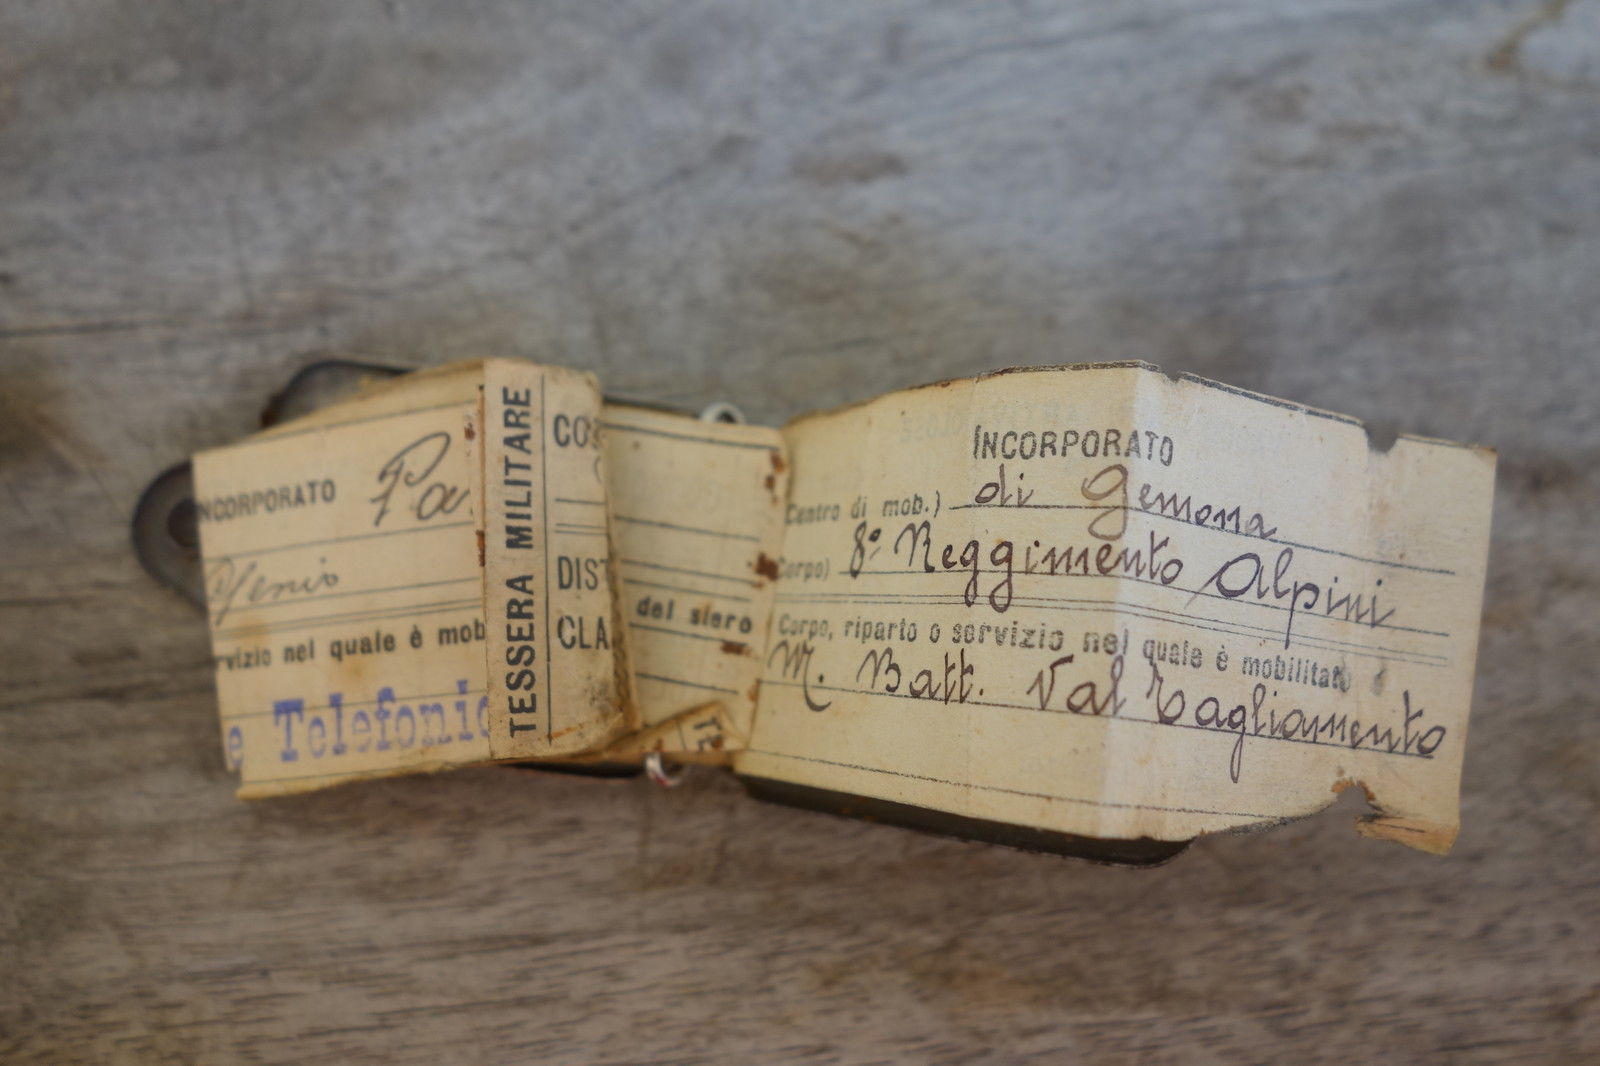 INCORPORATO Pa
Genio
rvizio nel quale è mob
e Telefonic
TESSERA MILITARE
CO
DIST
CLA
del siero
TE
INCORPORATO
Centro di mob.) di Gemona
Corpo) 8º Reggimento Alpini
Corpo, riparto o servizio nel quale è mobilitato
M. Batt. Val Tagliamento